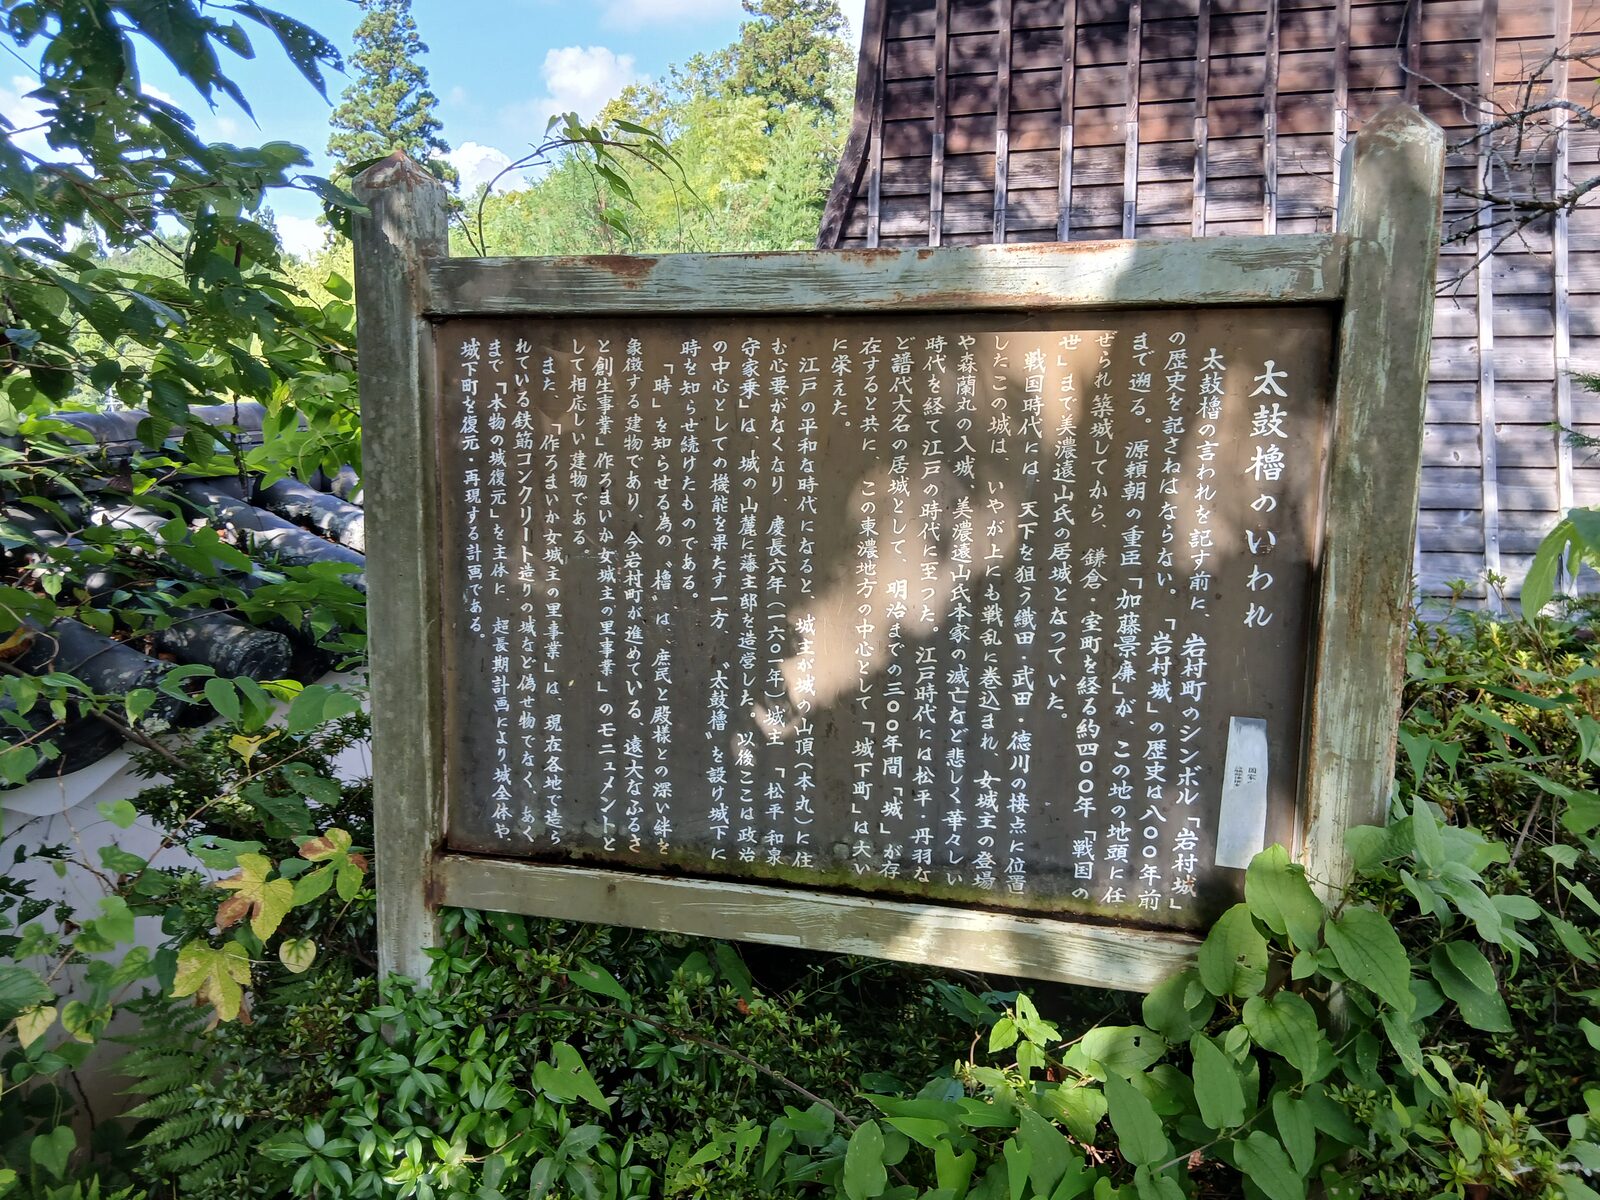 太鼓櫓のいわれ
太鼓櫓の言われを記す前に、岩村町のシンボル「岩村城」
の歴史を記さねばならない。「岩村城」の歴史は八〇〇年前
まで遡る。源頼朝の重臣「加藤景廉」が、この地の地頭に任
ぜられ築城してから、鎌倉・室町を経る約四〇〇年「戦国の
世」まで美濃遠山氏の居城となっていた。
戦国時代には、天下を狙う織田・武田・徳川の接点に位置
したこの城は、いやが上にも戦乱に巻込まれ、女城主の登場
や森蘭丸の入城、美濃遠山氏本家の滅亡など悲しく華々しい
時代を経て江戸の時代に至った。江戸時代には松平・丹羽な
ど譜代大名の居城として、明治までの三〇〇年間「城」が存
在すると共に、この東濃地方の中心として「城下町」は大い
に栄えた。
江戸の平和な時代になると、城主が城の山頂(本丸)に住
む心要がなくなり、慶長六年(一六〇一年)城主「松平和泉
守家乗」は、城の山麓に藩主邸を造営した。以後ここは政治
の中心としての機能を果たす一方、〝太鼓櫓〟を設け城下に
時を知らせ続けたものである。
「時」を知らせる為の〝櫓〟は、庶民と殿様との深い絆を
象徴する建物であり、今岩村町が進めている、遠大なふるさ
と創生事業「作ろまいか女城主の里事業」のモニュメントと
して相応しい建物である。
また、「作ろまいか女城主の里事業」は、現在各地で造ら
れている鉄筋コンクリート造りの城など偽せ物でなく、あく
まで「本物の城復元」を主体に、超長期計画により城全体や、
城下町を復元・再現する計画である。